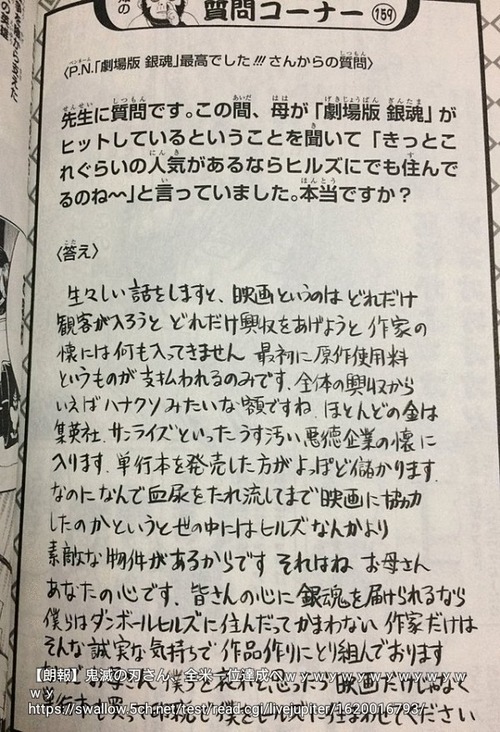 質問コーナー 159
〈P.N.「劇場版 銀魂」最高でした!!!さんからの質問〉
先生に質問です。この間、母が「劇場版 銀魂」が
ヒットしているということを聞いて「きっとこ
れぐらいの人気があるならヒルズにでも住んで
るのね〜〜」と言っていました。本当ですか?
〈答え〉
生々しい話をしますと、映画というのは どれだけ
観客が入ろうと どれだけ興収をあげようと 作家の
懐には何も入ってきません 最初に原作使用料
というものが支払われるのみです。全体の興収から
いえばハナクソみたいな額ですね。ほとんどの金は
集英社、サンライズといったうす汚い悪徳企業の懐に
入ります。単行本を発売した方がよっぽど儲かります。
なのになんで血尿をたれ流してまで映画に協力
したのかというと世の中にはヒルズなんかより
素敵な物件があるからです それはね お母さん
あなたの心です。皆さんの心に 銀魂を届けられるなら
僕らはダンボールヒルズに住んだってかまわない 作家だけは
そんな誠実な気持ちで 作品作りにとり組んでおります
【朗報】鬼滅の刃さん、全米一位達成へｗｙｗｙｗｙｗｙｗｙｗ
ｗｙ
https://swallow.5ch.net/test/read.cgi/livejupiter/1620016793/